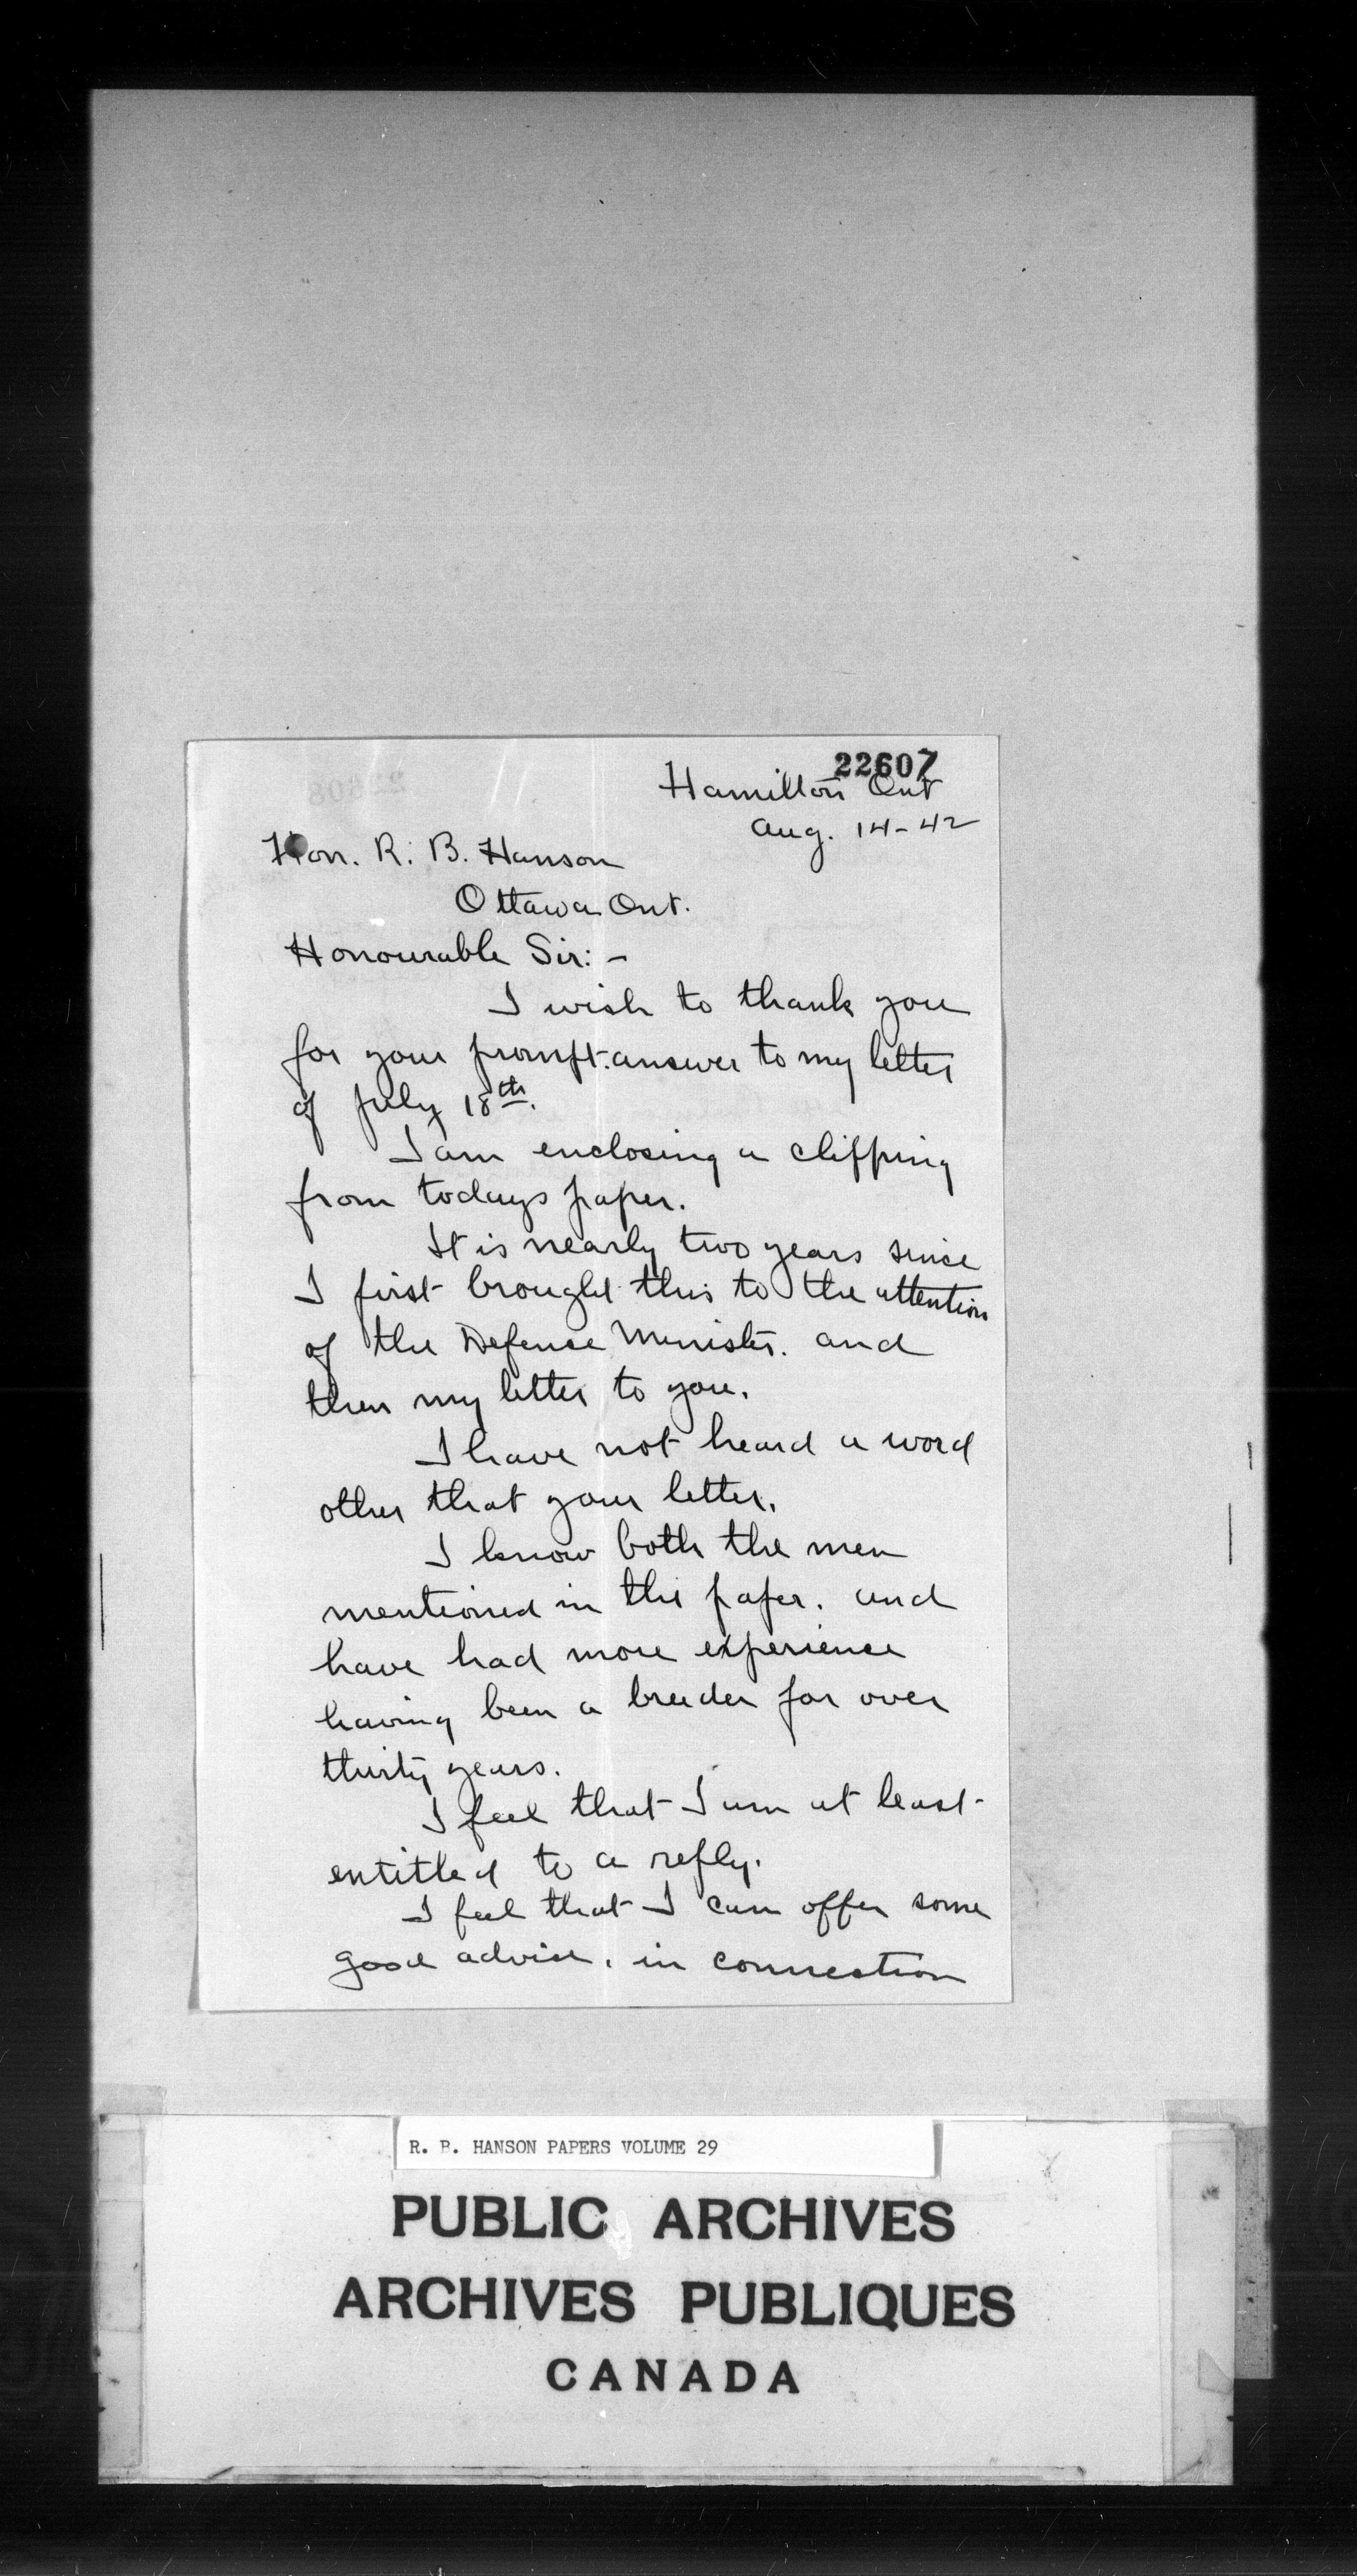 22607
Hamilton Ont
Aug. 14-42
Hon. R. B. Hanson
Ottawa Ont.
Honourable Sir: -
I wish to thank you
for your prompt answer to my letter
of July 18th.
I am enclosing a clipping
from todays paper.
It is nearly two years since
I first brought this to the attention
of the Defense Minister. and
then my letter to you.
I have not heard a word
other that your letter.
I know both the men
mentioned in the paper. and
have had more experience
having been a breeder for over
thirty years.
I feel that I am at least
entitled to a reply.
I feel that I can offer some
good advise. in connection
R. B. HANSON PAPERS VOLUME 29
PUBLIC ARCHIVES
ARCHIVES PUBLIQUES
CANADA